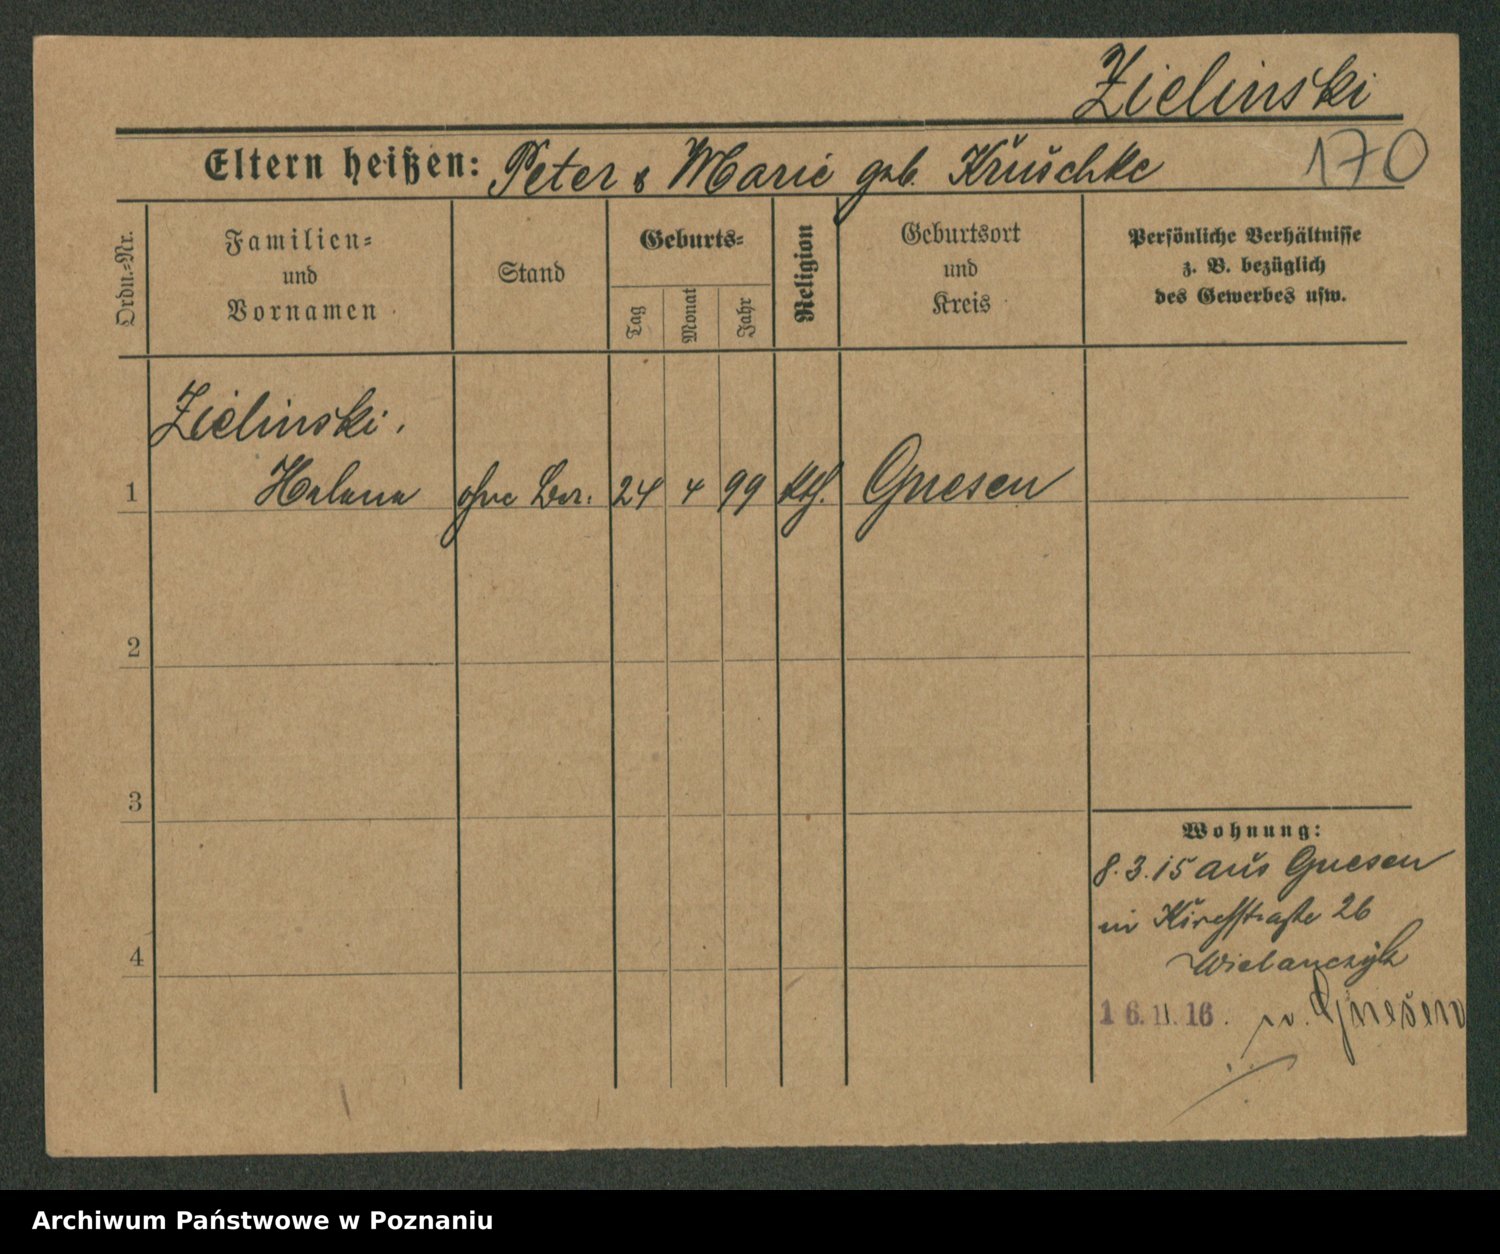 Zielinski
Eltern heißen: Peter & Marie geb. Kruschke
170
Ordn.-Nr.
Familien-
und
Vornamen
Stand
Geburts-
Tag
Monat
Jahr
Religion
Geburtsort
und
Kreis
Persönliche Verhältnisse
z. B. bezüglich
des Gewerbes usw.
Zielinski.
1 Helena ohne Ber. 24 4 99 kth. Gnesen
2
3
4
Wohnung:
8.3.15 aus Gnesen
in Kirchstraße 26
Wielanczyk
16.11.16. n. Gnesen
Archiwum Państwowe w Poznaniu